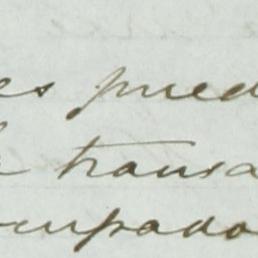 es pued
a transa
cupado